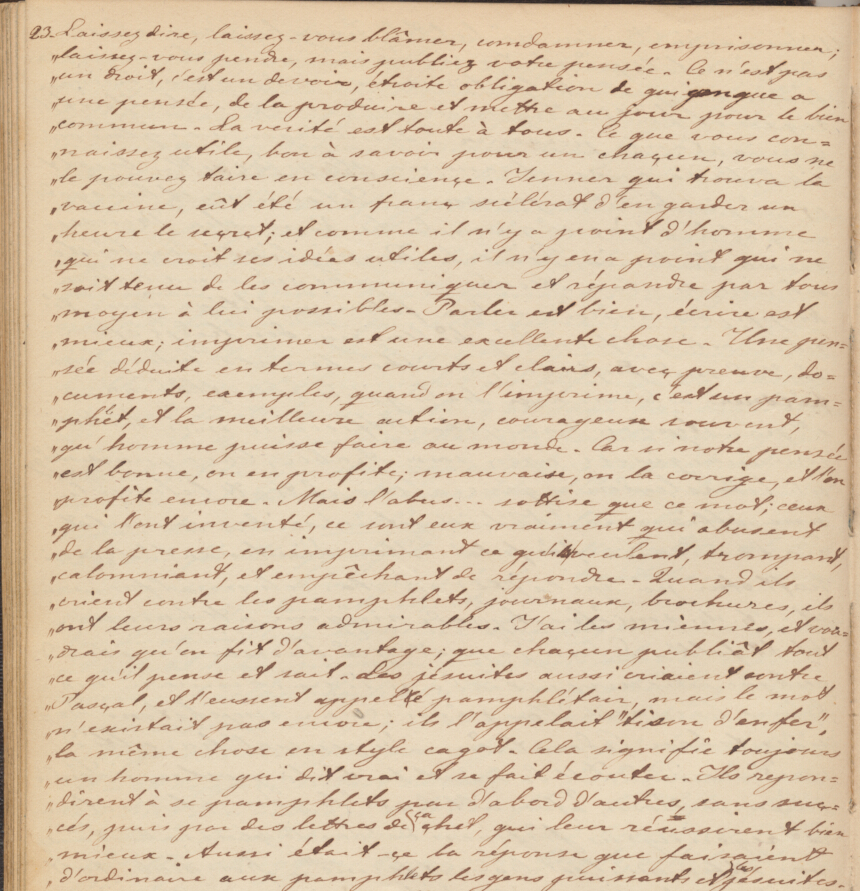 23. Laissez dire, laissez-vous blâmer, comdamner, emprisonner;
„laissez-vous pendre, mais publiez votre pensée. Ce n'est pas
„un droit, c'est un devoir, étroite obligation de quiconque a
„une pensée, de la produire et mettre au jour pour le bien
„commun. La verité est toute à tous. Ce que vous con=
„naissez utile, bon à savoir pour un chacun, vous ne
„le pouvez taire en conscience. Jenner qui trouva la
„vaccine, eût été un franc scélérat d'en garder un
„heure le secret; et comme il n'y a point d'homme
„qui ne croit ses idées utiles, il n'y en a point qui ne
„soit tenu de les communiquer et répandre par tous
„moyen à lui possibles. Parler est bien, écrire est
„mieux; imprimer est une excellente chose. Une pen=
„sée déduite en termes courts et clairs, avec preuve, do=
„cuments, exemples, quand on l'imprime, c'est un pam=
„phlét, et la meilleure action, courageuse souvent,
„qu'homme puisse faire au monde. Car si notre pensée
„est bonne, on en profite; mauvaise, on la corrige, et l'on
„profite encore. Mais l'abus... sottise que ce mot; ceux
„qui l'ont inventé, ce sont eux vraiment qui abusent
„de la presse, en imprimant ce qu'il veulent, trompant,
„calomniant, et empêchant de répondre. Quand ils
„crient contre les pamphlets, journaux, brochures, ils
„ont leurs raisons admirables. J'ai les miennes, et vou=
„drais qu'on fit d'avantage; que chacun publiât tout
„ce qu'il pense et sait. Les jésuites aussi criaient contre
„Pascal, et l'eussent appelé pamphlétair, mais le mot
„n'existait pas encore; ils l'appelait "tison d'enfer",
„la même chose en style cagot. Cela signifie toujours
„un homme qui dit vrai et se fait écouter. Ils repon=
„dirent à se pamphlets par d'abord d'autres, sans suc=
„cés, puis par des lettres de cachet, qui leur réussirent bien
„mieux. Aussi était-ce la réponse que faisaient
„d'ordinaire aux pamphlets les gens puissants et les jésuites.